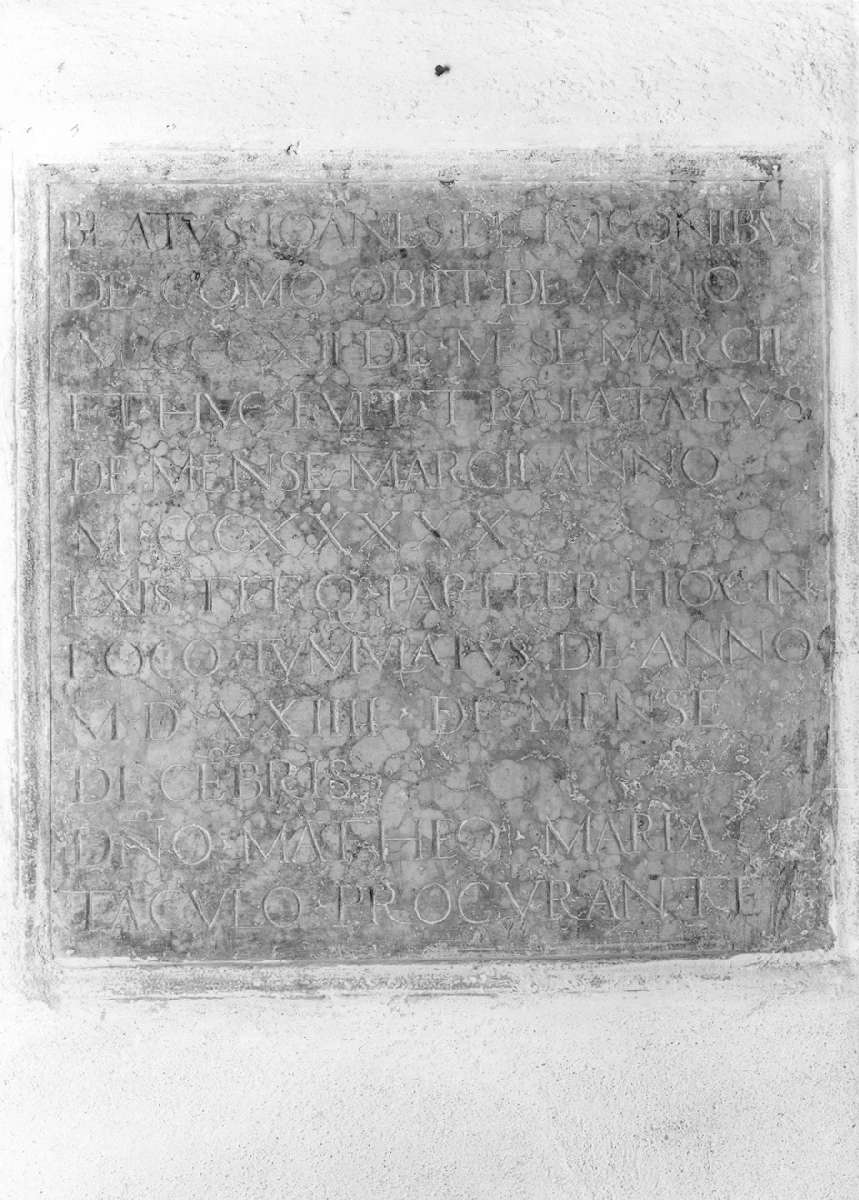 BEATVS · IOANES · DE TVRCONIBVS
DE · COMO · OBIIT · DE · ANNO
M · CCCCXII DE · MESE MARCII
ET · HVC · FVIT · TRASLATATVS
DE · MENSE MARCII · ANNO
M · CCCCXXXXX
EXISTITEQ PARITER · HOC IN
LOCO · TVMVLATVS · DE · ANNO
M · D · XXIIII · DE · MENSE
DECEBRIS
DNO · MATHEO · MARIA
TACVLO · PROCVRANTE